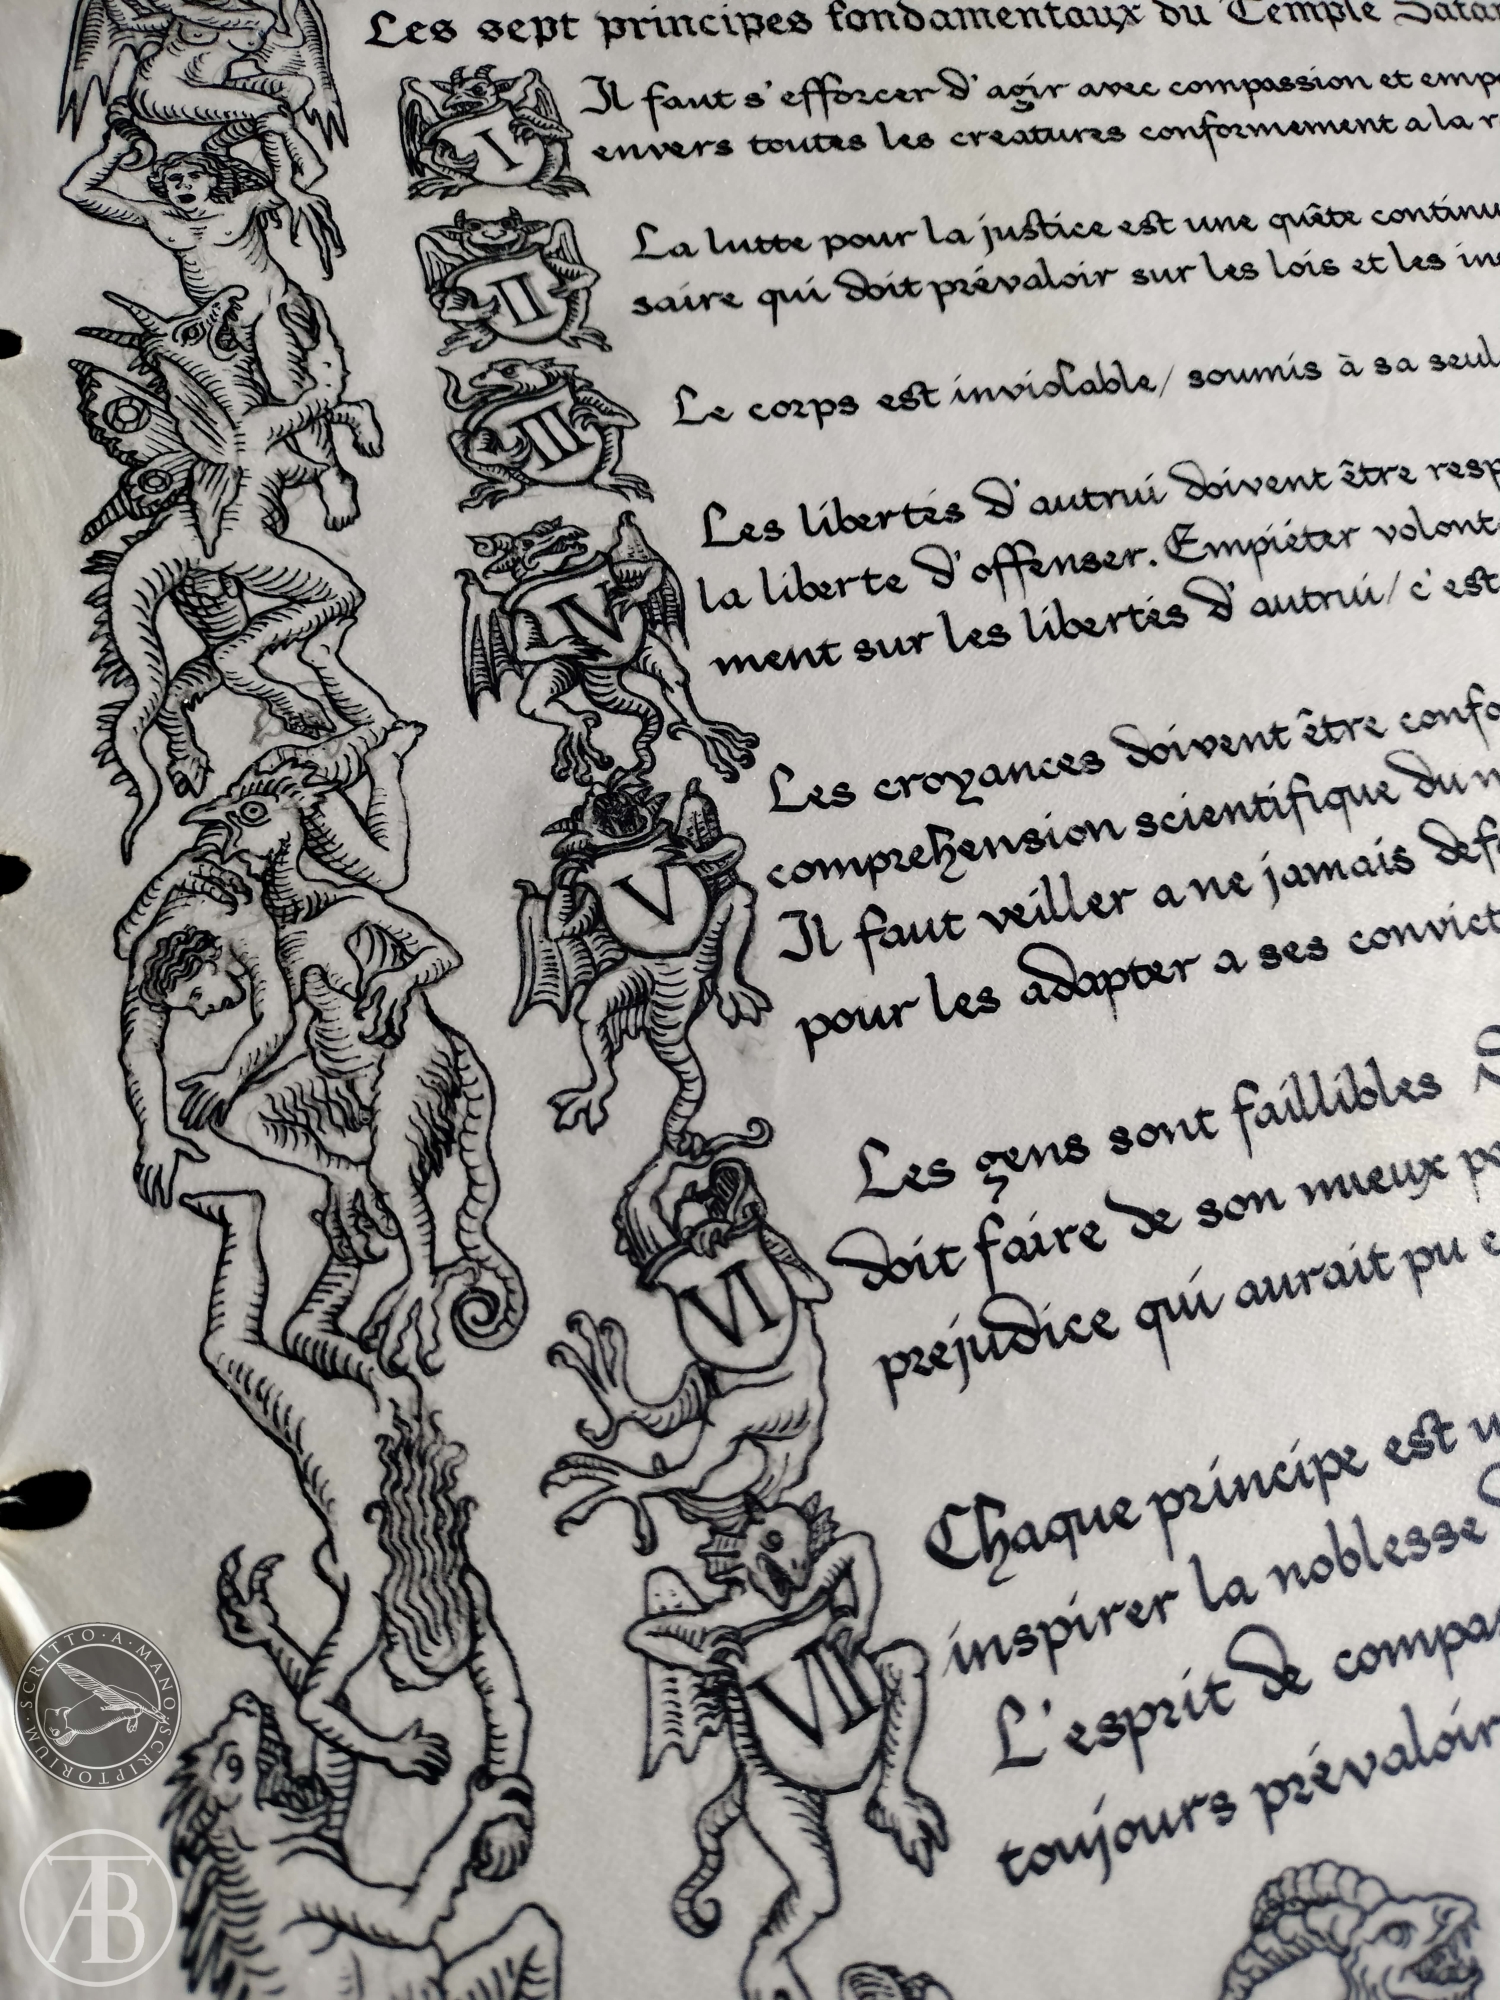 Les sept principes fondamentaux du Temple
I
Il faut s'efforcer d'agir avec compassion et
envers toutes les creatures conformement a la
II
La lutte pour la justice est une quête
saire qui doit prévaloir sur les lois et les
III
Le corps est inviolable/ soumis à sa
IV
Les libertés d'autrui doivent être
la liberte d'offenser. Empiéter
ment sur les libertés d'autrui/ c'est
V
Les croyances doivent être
comprehension scientifique du
Il faut veiller a ne jamais
pour les adapter a ses
VI
Les gens sont faillibles
doit faire de son mieux
prejudice qui aurait pu
VII
Chaque principe est
inspirer la noblesse
L'esprit de
toujours prévaloir
SCRITTO·A·MANO·SCRIPTORIUM·
ATB